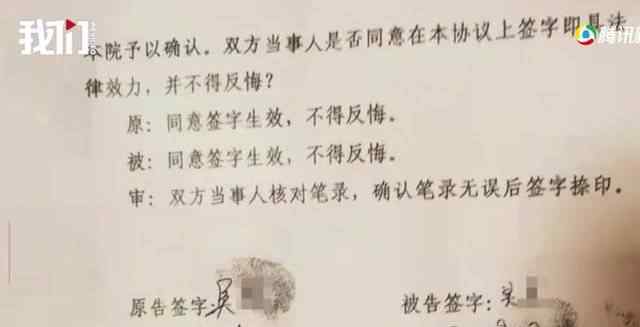 我们
腾讯
本院予以确认。双方当事人是否同意在本协议上签字即具法
律效力，并不得反悔？
原：同意签字生效，不得反悔。
被：同意签字生效，不得反悔。
审：双方当事人核对笔录，确认笔录无误后签字捺印。
原告签字：吴
被告签字：吴